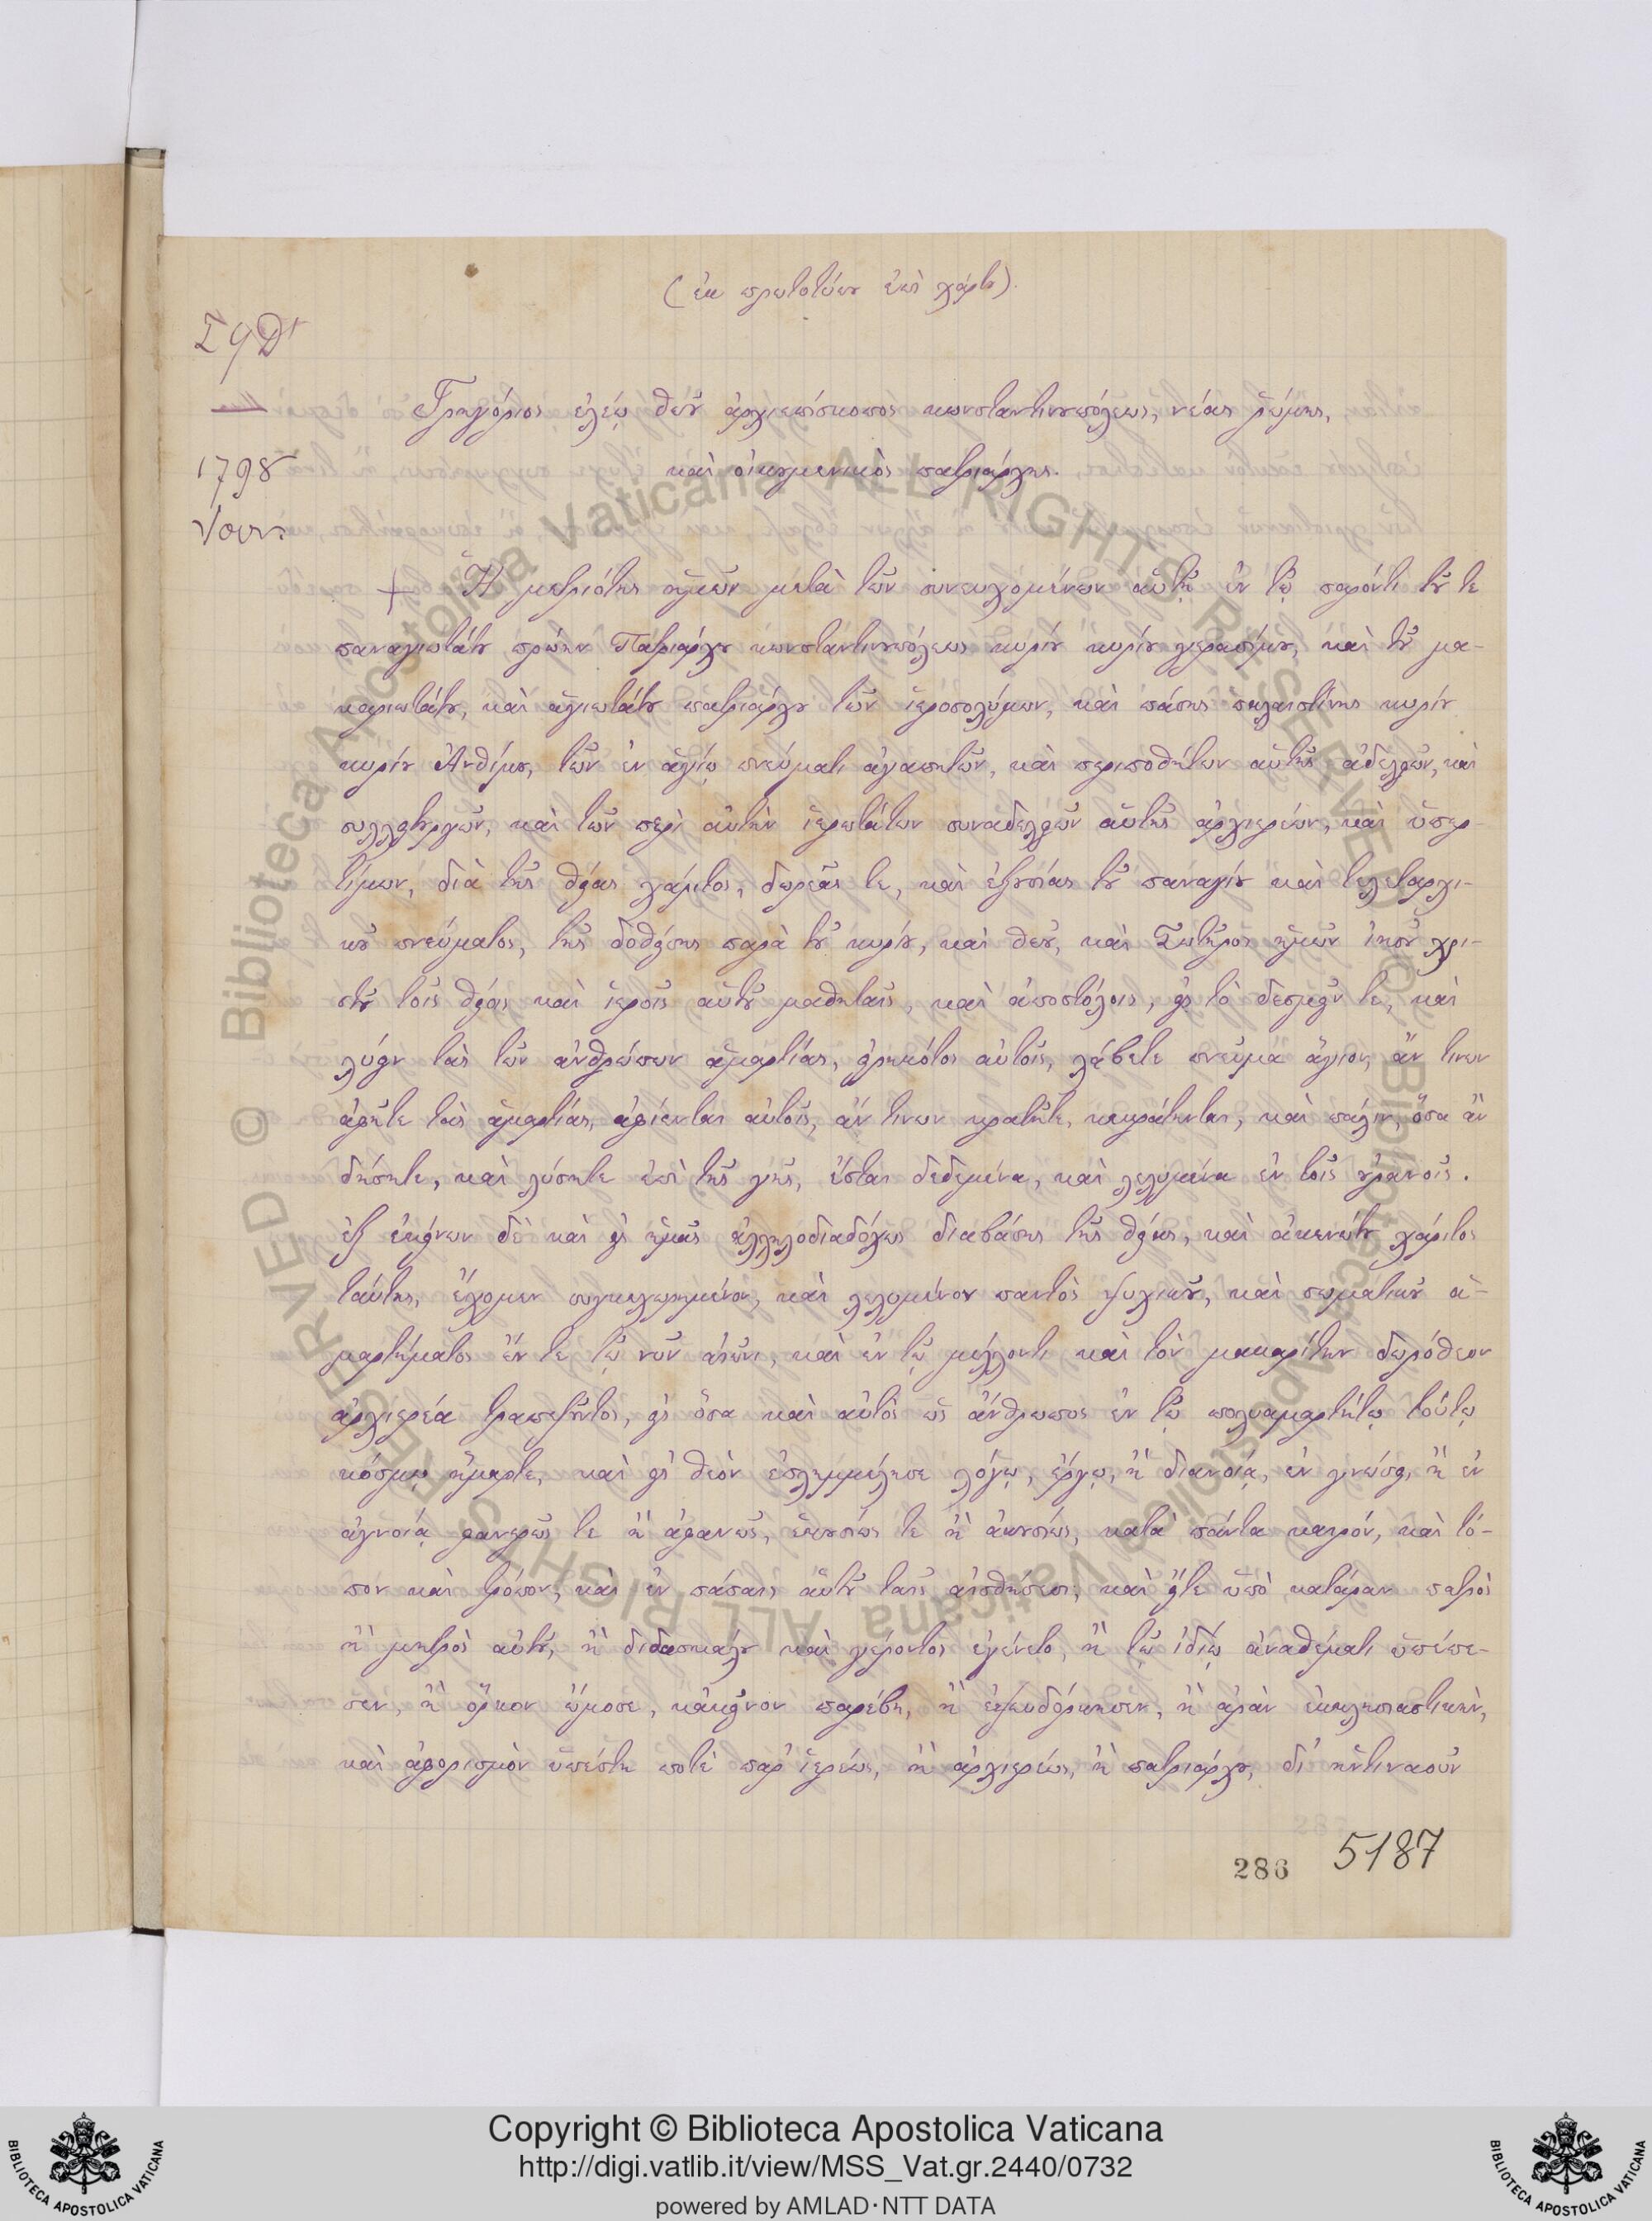 (ἐκ πρωτοτύπου ἐπὶ χάρτου).
ΣϟΔ'
Γρηγόριος ἐλέῳ θεοῦ ἀρχιεπίσκοπος κωνσταντινουπόλεως, νέας ῥώμης,
1798
καὶ οἰκουμενικὸς πατριάρχης.
Ἰουν.
+ Ἡ μετριότης ἡμῶν μετὰ τῶν συνευχομένων αὐτῇ ἐν τῷ παρόντι τοῦ τε
παναγιωτάτου πρώην Πατριάρχου κωνσταντινουπόλεως κυρίου κυρίου γερασίμου, καὶ τοῦ μα-
καριωτάτου, καὶ ἁγιωτάτου πατριάρχου τῶν ἱεροσολύμων, καὶ πάσης παλαιστίνης κυρίου
κυρίου Ἀνθίμου, τῶν ἐν ἁγίῳ πνεύματι ἀγαπητῶν, καὶ περιποθήτων αὐτῆς ἀδελφῶν, καὶ
συλλειτουργῶν, καὶ τῶν περὶ αὐτὴν ἱερωτάτων συναδελφῶν αὐτῆς ἀρχιερέων, καὶ ὑπερ-
τίμων, διὰ τῆς θείας χάριτος, δωρεᾶς τε, καὶ ἐξουσίας τοῦ παναγίου καὶ τελεταρχι-
κοῦ πνεύματος, τῆς δοθείσης παρὰ τοῦ κυρίου, καὶ θεοῦ, καὶ Σωτῆρος ἡμῶν ἰησοῦ χρι-
στοῦ τοῖς θείοις καὶ ἱεροῖς αὐτοῦ μαθηταῖς, καὶ ἀποστόλοις, εἰς τὸ δεσμεῖν τε, καὶ
λύειν τὰς τῶν ἀνθρώπων ἁμαρτίας, εἰρηκότος αὐτοῖς, λάβετε πνεῦμα ἅγιον, ἄν τινων
ἀφῆτε τὰς ἁμαρτίας, ἀφίενται αὐτοῖς, ἄν τινων κρατῆτε, κεκράτηνται, καὶ πάλιν, ὅσα ἂν
δήσητε, καὶ λύσητε ἐπὶ τῆς γῆς, ἔσται δεδεμένα, καὶ λελυμένα ἐν τοῖς οὐρανοῖς.
ἐξ ἐκείνων δὲ καὶ εἰς ἡμᾶς ἀλληλοδιαδόχως διαβάσης τῆς θείας, καὶ ἀκενώτου χάριτος
ταύτης, ἔχομεν συγκεχωρημένον, καὶ λελυμένον παντὸς ψυχικοῦ, καὶ σωματικοῦ ἁ-
μαρτήματος ἔν τε τῷ νῦν αἰῶνι, καὶ ἐν τῷ μέλλοντι καὶ τὸν μακαρίτην δωρόθεον
ἀρχιερέα τραπεζοῦντος, εἰς ὅσα καὶ αὐτὸς ὡς ἄνθρωπος ἐν τῷ πολυαμαρτήτῳ τούτῳ
κόσμῳ ἥμαρτε, καὶ εἰς θεὸν ἐπλημμέλησε λόγῳ, ἔργῳ, ἢ διανοίᾳ, ἐν γνώσει, ἢ ἐν
ἀγνοίᾳ φανερῶς τε ἢ ἀφανῶς, ἑκουσίως τε ἢ ἀκουσίως, κατὰ πάντα καιρόν, καὶ τό-
πον καὶ τρόπον, καὶ ἐν πάσαις αὐτοῦ ταῖς αἰσθήσεσι, καὶ εἴτε ὑπὸ κατάραν πατρὸς
ἢ μητρὸς αὐτοῦ, ἢ διδασκάλου καὶ γέροντος ἐγένετο, ἢ τῷ ἰδίῳ ἀναθέματι ὑπέπε-
σεν, ἢ ὅρκον ὤμοσε, κἀκεῖνον παρέβη, ἢ ἐψευδόρκησεν, ἢ ἀρὰν ἐκκλησιαστικὴν,
καὶ ἀφορισμὸν ὑπέστη ποτὲ παρ' ἱερέως, ἢ ἀρχιερέως, ἢ πατριάρχου, δι' ἡντιναοῦν
286 5187
© Biblioteca Apostolica Vaticana ALL RIGHTS RESERVED
© Biblioteca Apostolica Vaticana ALL RIGHTS RESERVED
Copyright © Biblioteca Apostolica Vaticana
http://digi.vatlib.it/view/MSS_Vat.gr.2440/0732
powered by AMLAD·NTT DATA
BIBLIOTECA APOSTOLICA VATICANA
BIBLIOTECA APOSTOLICA VATICANA